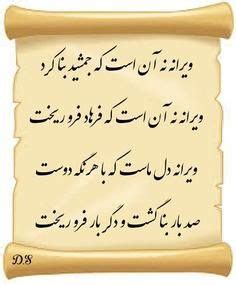 ویرانه نه آن است که جمشید بنا کرد
ویرانه نه آن است که فرهاد فرو ریخت
ویرانه دل ماست که با هر نگه دوست
صد بار بنا گشت و دگر بار فرو ریخت
D.S